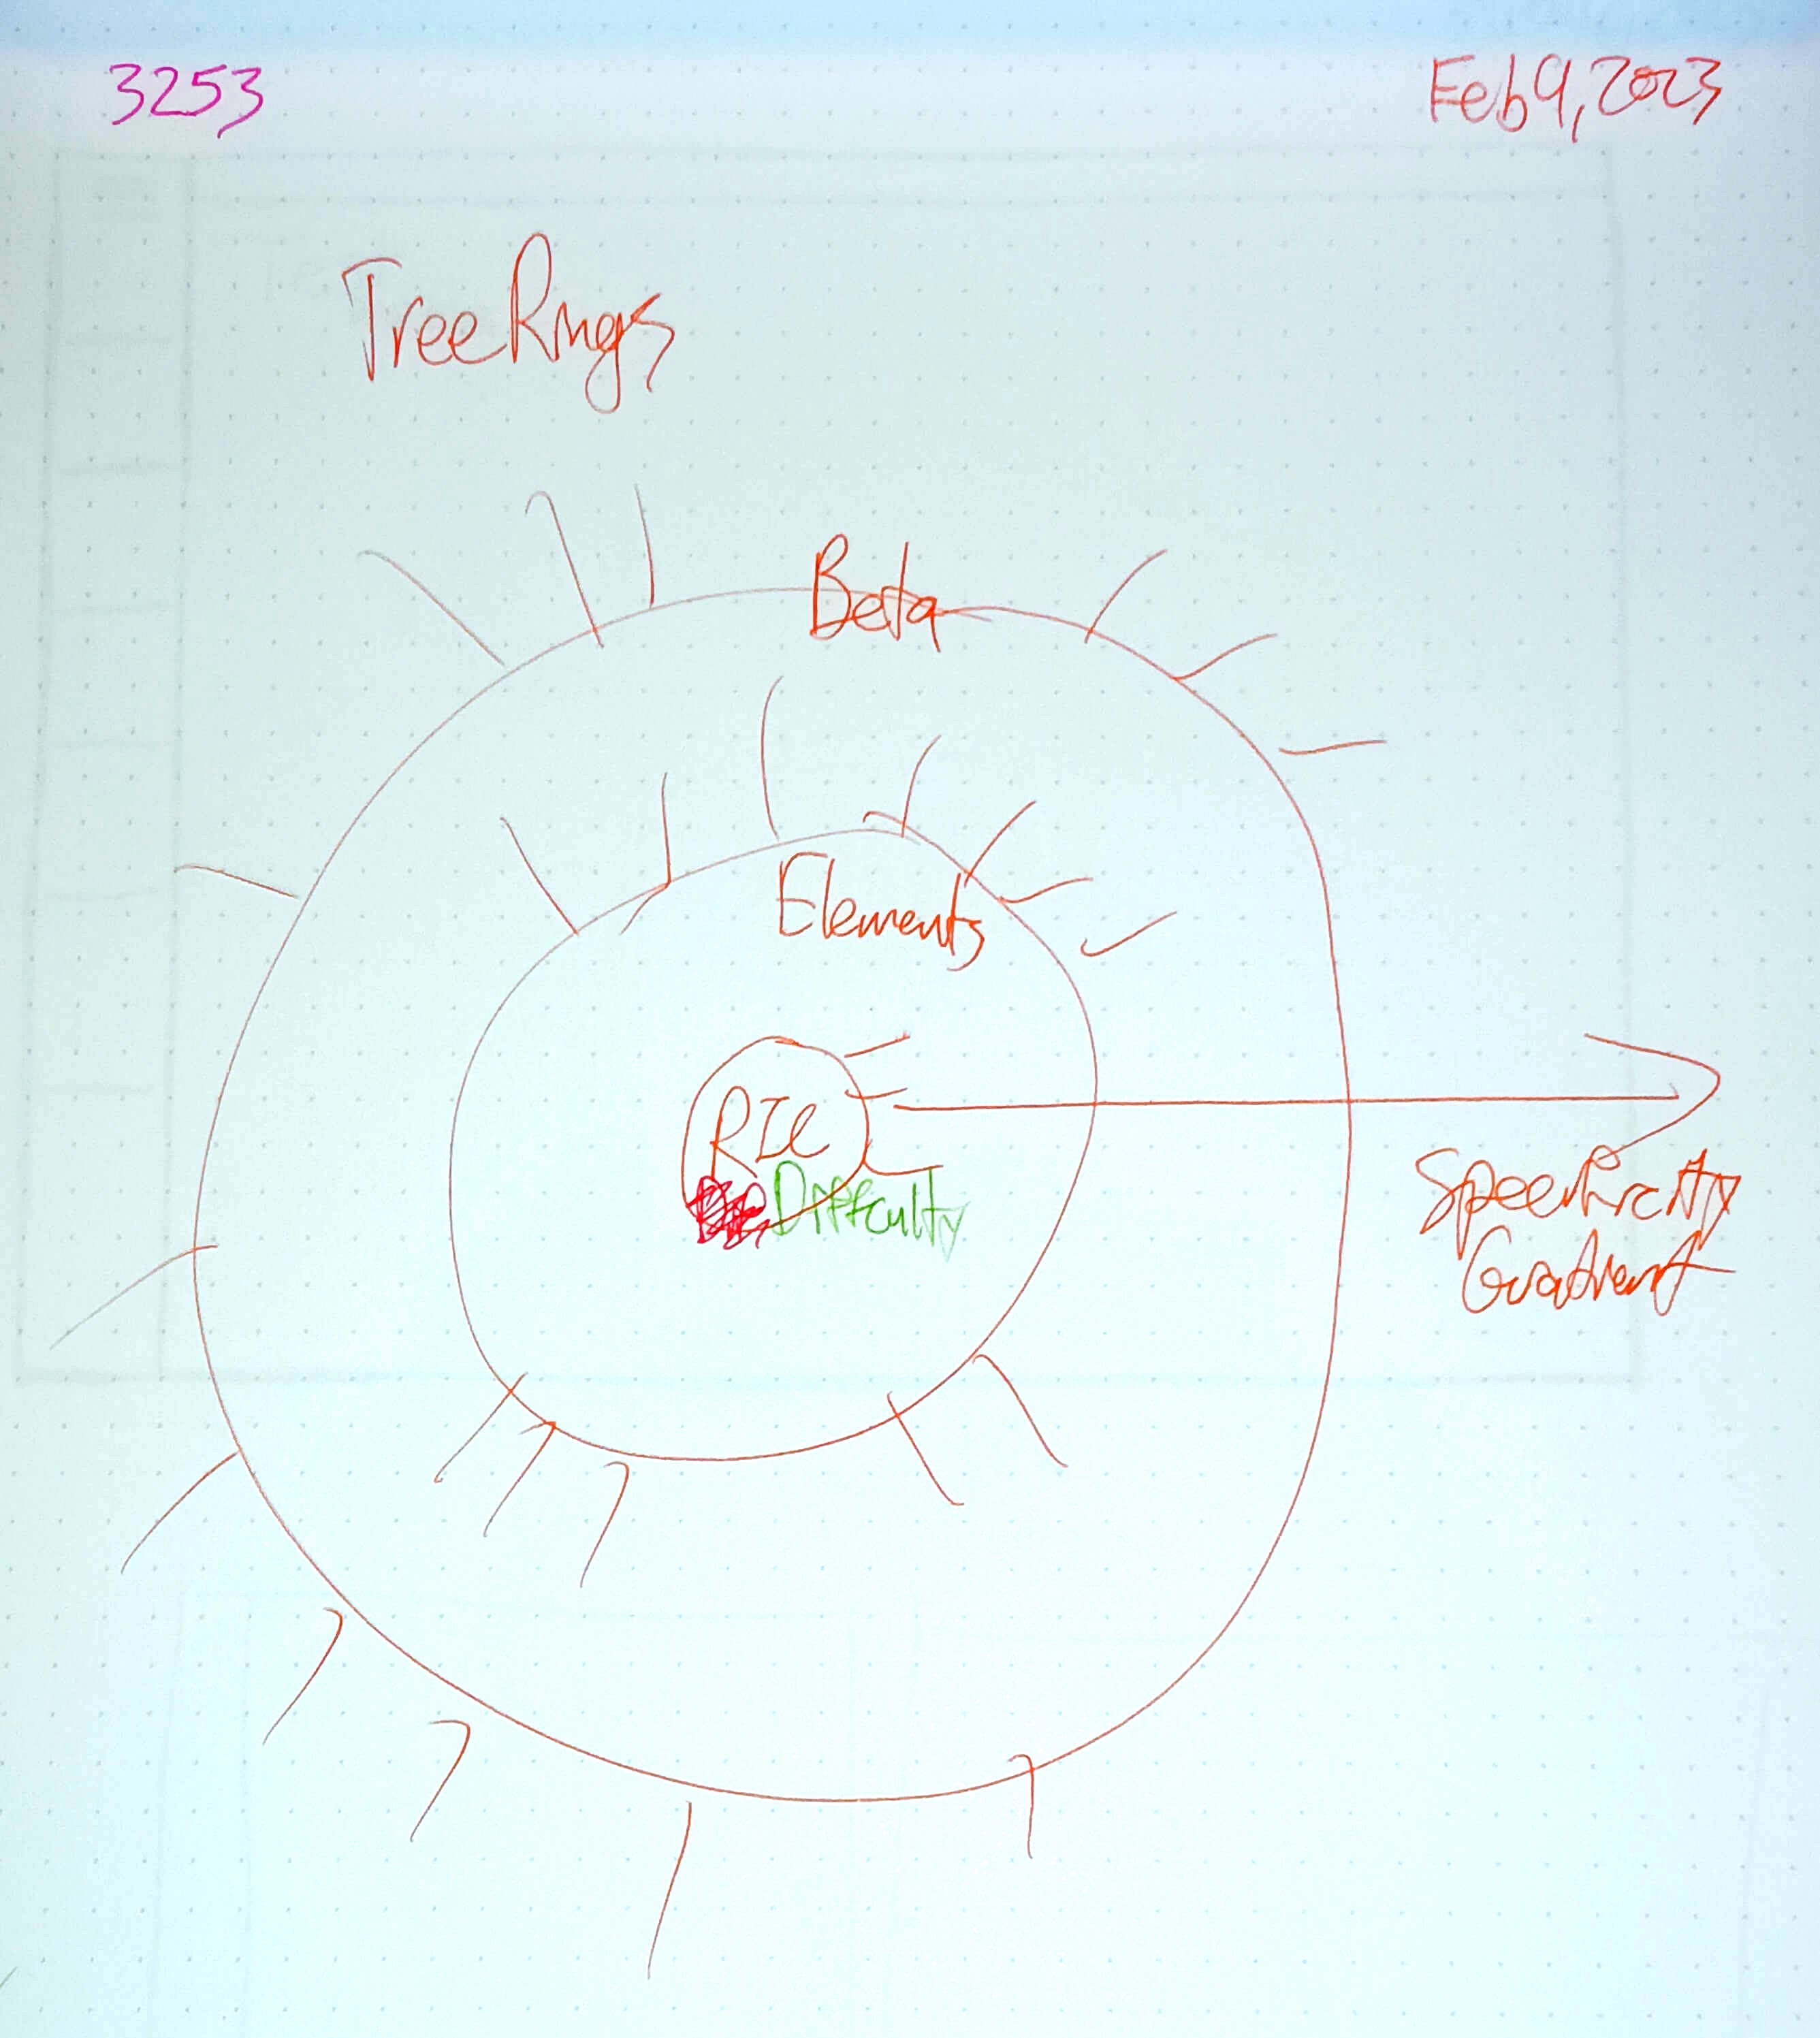 3253
Feb 9, 2023
Tree Rings
Beta
Elements
RIC
Difficulty
Specificity
Gradient